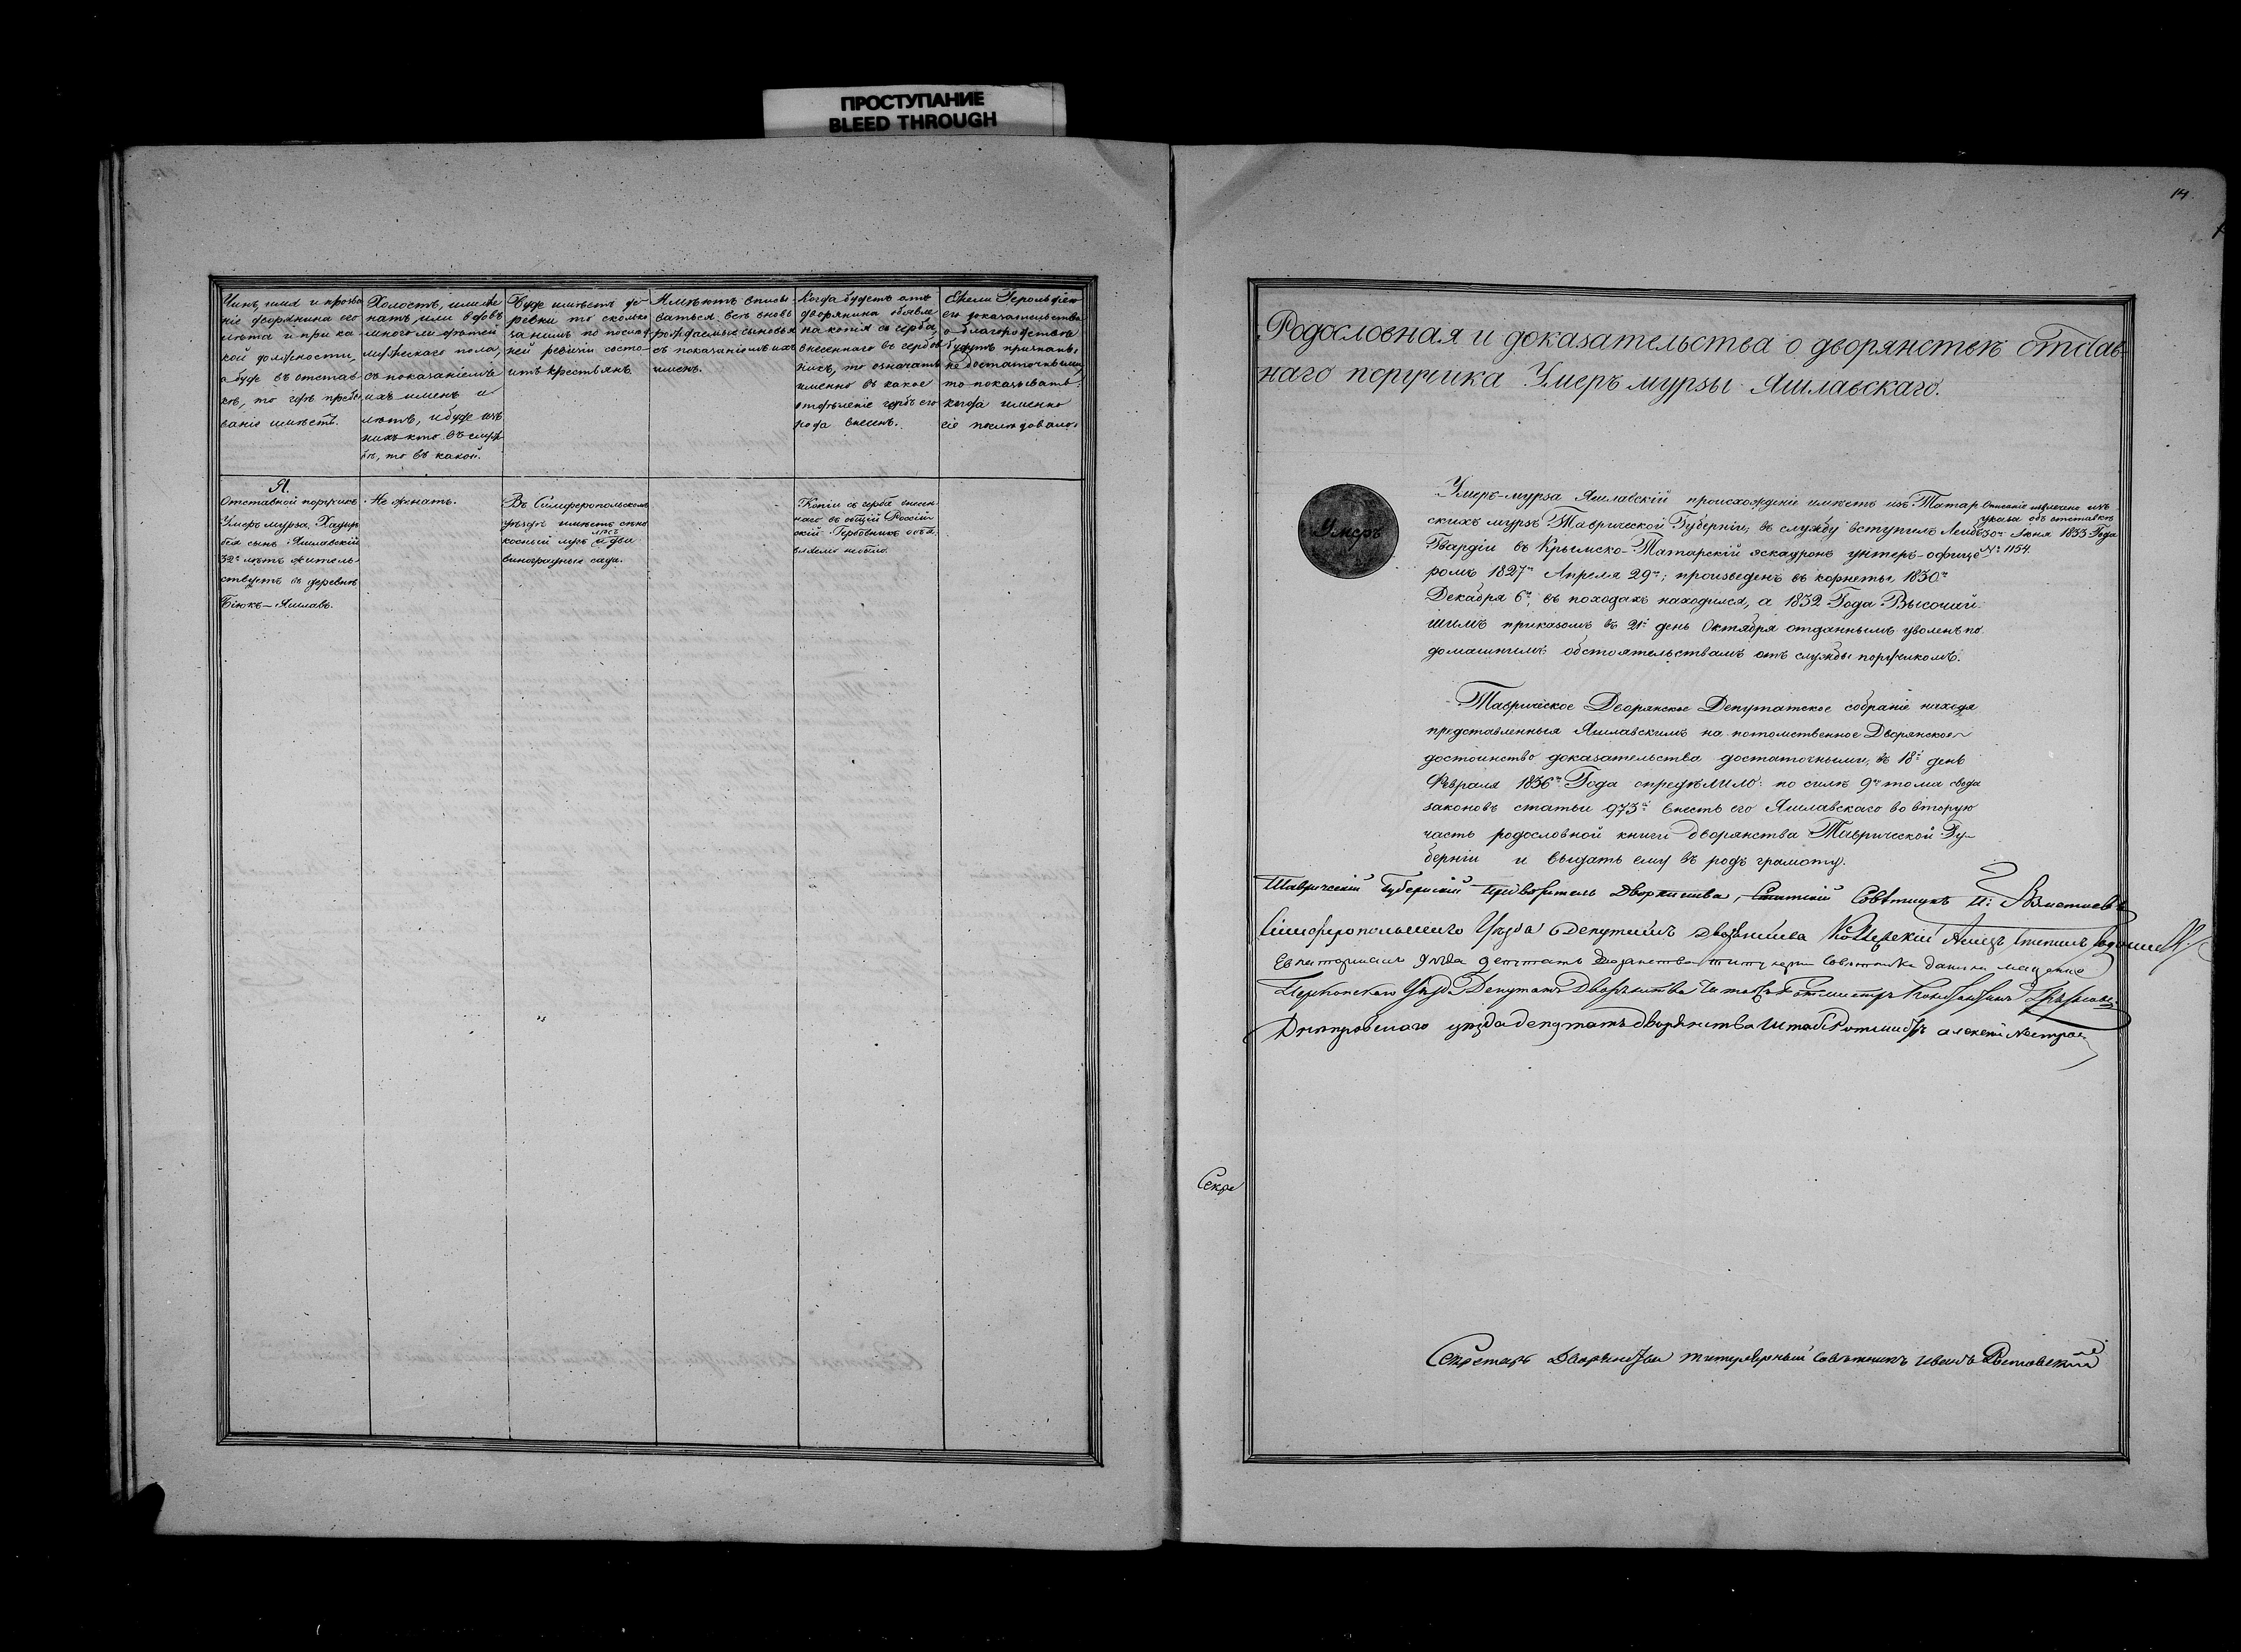 ПРОСТУПАНИЕ
BLEED THROUGH
Чинъ, имя и прозва
ніе дворянина его
лѣта и при ка
кой должности,
а буде въ отстав-
кѣ, то гдѣ пребы
ваніе имѣетъ.
Холостъ, или же
натъ, или вдовъ
много ли дѣтей
мужескаго пола,
съ показаніемъ
ихъ именъ и
лѣтъ, и буде изъ
нихъ кто въ служ
бѣ, то въ какой.
Буде имѣетъ де-
ревни то сколько
за нимъ по послѣд
ней ревизіи состо-
итъ крестьянъ.
Имѣютъ вписы-
ваться всѣ вновь
рождаемые сыновья
съ показаніемъ ихъ
именъ.
Когда будетъ отъ
дворянина объявле
на копія съ герба
внесеннаго въ гербов
никъ, то означать
именно въ какое
отдѣленіе гербъ его
рода внесенъ.
Ежели Герольдіею
его доказательства
о благородствѣ
будутъ признаны
не достаточными,
то показывать
когда именно
сіе послѣдовало.
Я.
Отставной поручикъ
Умеръ мурза, Хадыр
бея сынъ Яшлавскій
32х лѣтъ житель-
ствуетъ въ деревнѣ
Біюкъ-Яшлавъ.
Не женатъ.
Въ Симферопольскомъ
уѣздѣ имѣетъ сѣно
косный лугъ и два
виноградные сада.
Копіи съ герба внесен-
наго въ общій Россій-
скій Гербовникъ объя
вляемо небыло.
14.
Родословная и доказательства о дворянствѣ отстав-
наго поручика Умеръ мурзы Яшлавскаго.
Умеръ
Умеръ-мурза Яшлавскій происхожденіе имѣетъ изъ Татар
скихъ мурзъ Таврической Губерніи; въ службу вступилъ Лейбъ
Гвардіи въ Крымско-Татарскій эскадронъ унтеръ-офице
ромъ 1827го Апреля 29го; произведенъ въ корнеты 1830го
Декабря 6го, въ походахъ находился, а 1832 Года Высочай-
шимъ приказомъ въ 21й день Октября отданнымъ уволенъ по
домашнимъ обстоятельствамъ отъ службы поручикомъ.
Описаніе изъ
указа объ отставкѣ
30го Июня 1833 Года
№ 1154.
Таврическое Дворянское Депутатское собраніе находя
представленныя Яшлавскимъ на потомственное Дворянское
достоинство доказательства достаточными, въ 18й день
Февраля 1836го Года опредѣлило: по силѣ 9го тома свода
законовъ статьи 973й внесть его Яшлавскаго во вторую
часть родословной книги дворянства Таврической Гу-
берніи и выдать ему въ родъ грамоту.
Таврическій Губернскій Предводитель Дворянства, Статскій Совѣтникъ
Симферопольскаго Уѣзда Депутатъ Дворянства
Евпаторійскаго уѣзда депутатъ Дворянства титулярн Совѣтникъ
Перекопскаго Уѣзда Депутатъ Дворянства Штабсъ Ротмистръ
Днѣпровскаго уѣзда депутатъ дворянства Штабс Ротмистръ алексѣй
Секре
Секретарь Дворянства титулярный совѣтникъ Иванъ